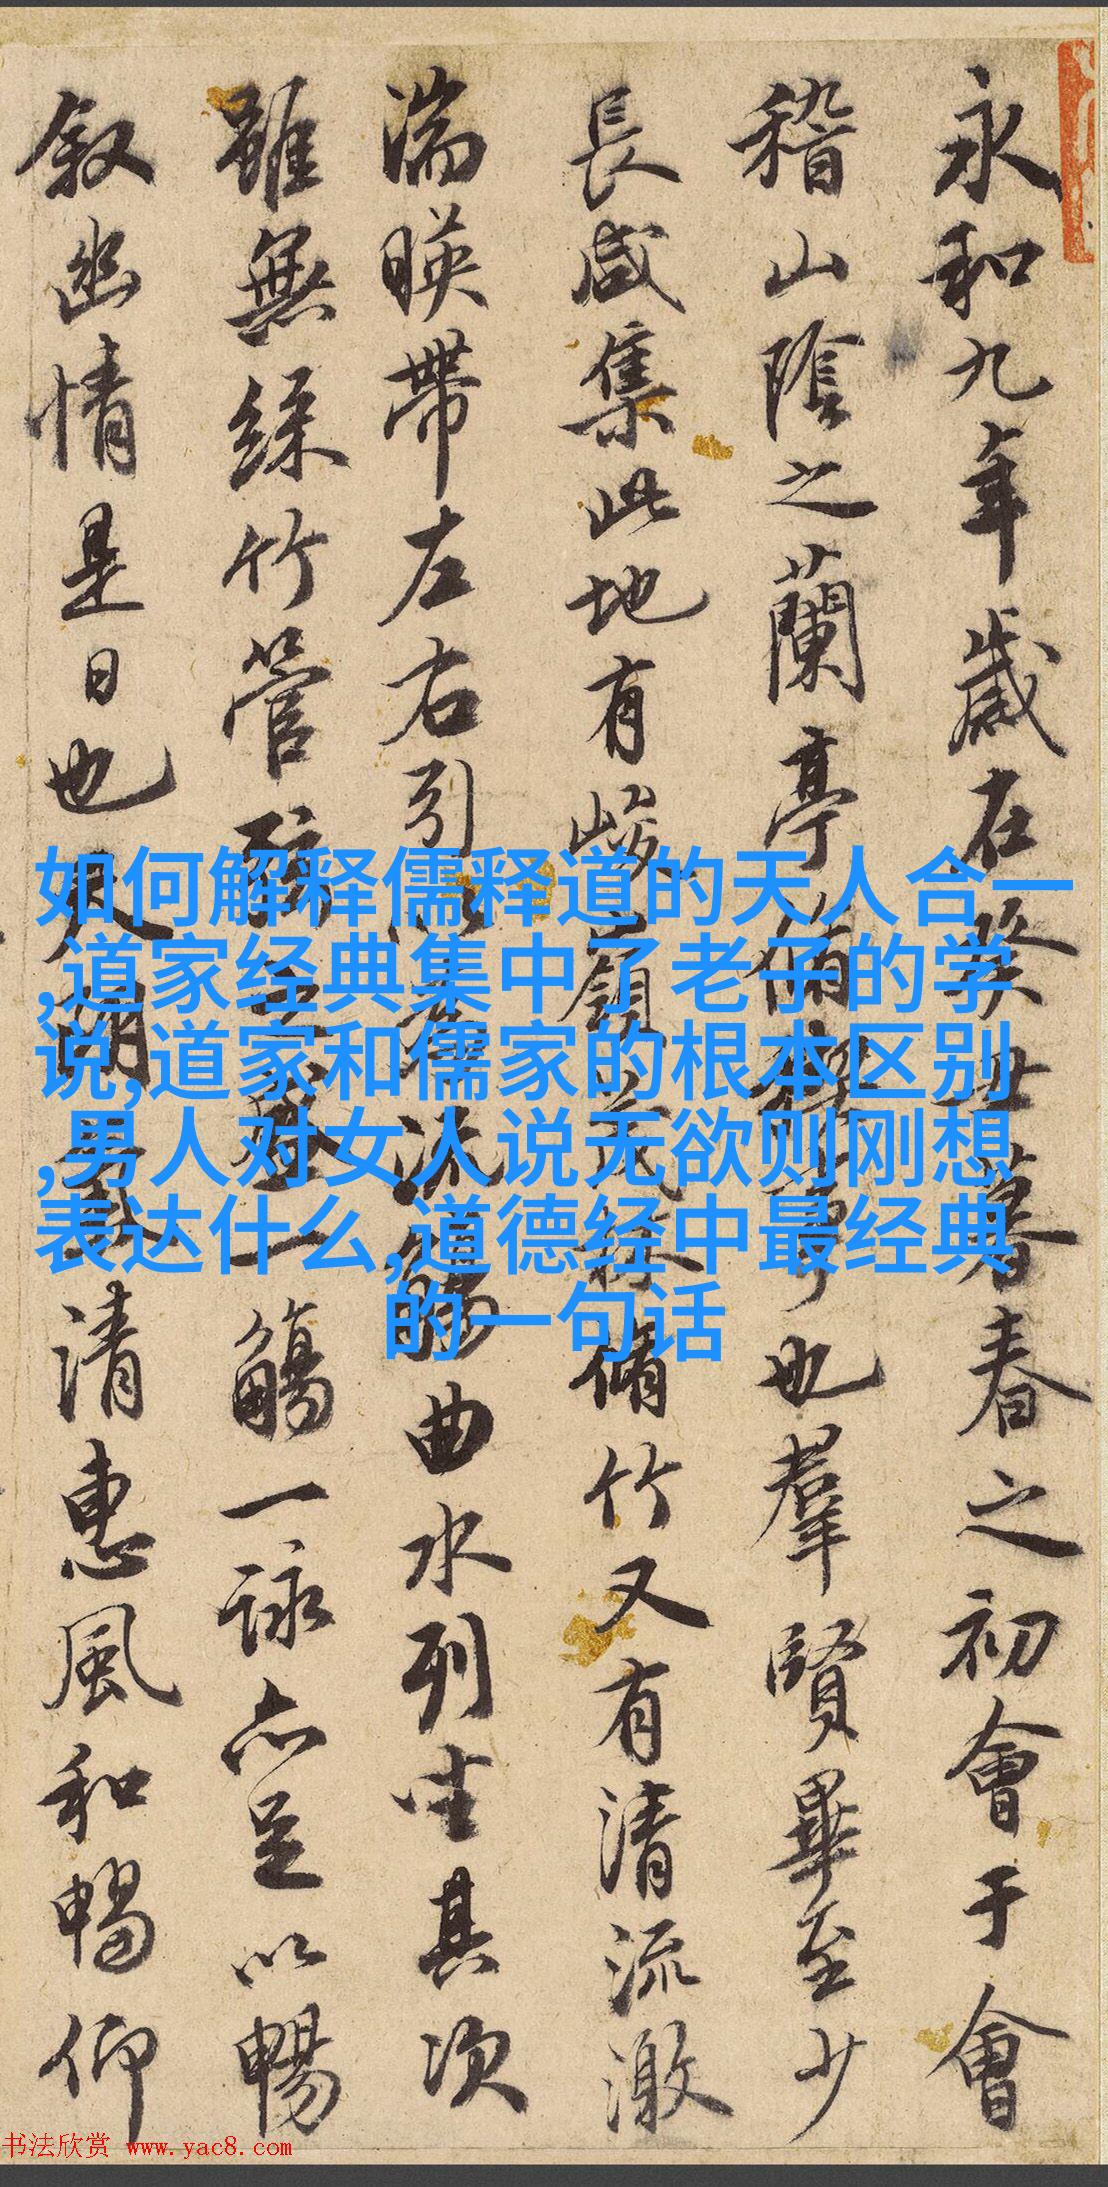 永和九年歲在癸丑暮春之初會于會
稽山陰之蘭亭脩稧事也羣賢畢至少
長咸集此地有峻領茂林脩竹又有清流激
湍暎帶左右引以為流觴曲水列坐其次
雖無絲竹管弦之盛一觴一詠亦足以暢
叙幽情是日也天朗氣清惠風和暢仰
如何解释儒释道的天人合一
,道家经典集中了老子的学
说,道家和儒家的根本区别
,男人对女人说无欲则刚想
表达什么,道德经中最经典
的一句话
书法欣赏 www.yac8.com